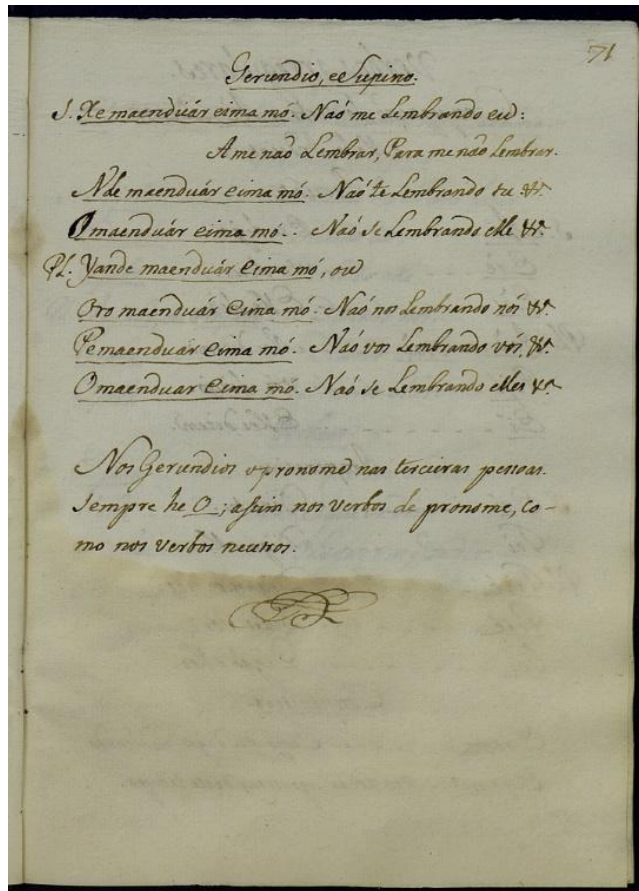 71
Gerundio, e Supino.
S. Xe maenduár eima mó. Naó me Lembrando eu:
A me naõ Lembrar, Para me naõ Lembrar.
Nde maenduár eima mó. Naó te Lembrando tu &.
O maenduár eima mó. Naó se Lembrando elle &.
Pl. Yande maenduár eima mó, ou
Oro maenduár eima mó. Naó nos Lembrando nós &.
Pe maenduár eima mó. Naó vos Lembrando vós, &.
O maenduar eima mó. Naó se Lembrando elles &.
Nos Gerundios o pronome nas terceiras pessoas
sempre he O; assim nos verbos de pronome, co-
mo nos verbos neutros.